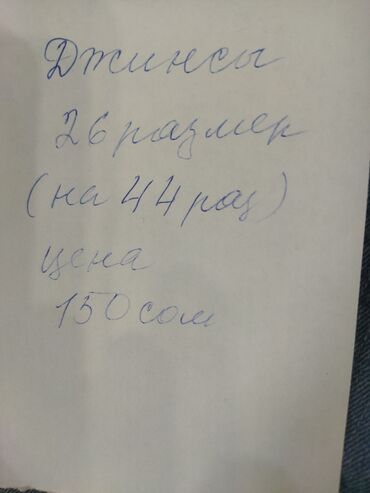 Джинсы
26 размер
(на 44 раз)
цена
150 сом